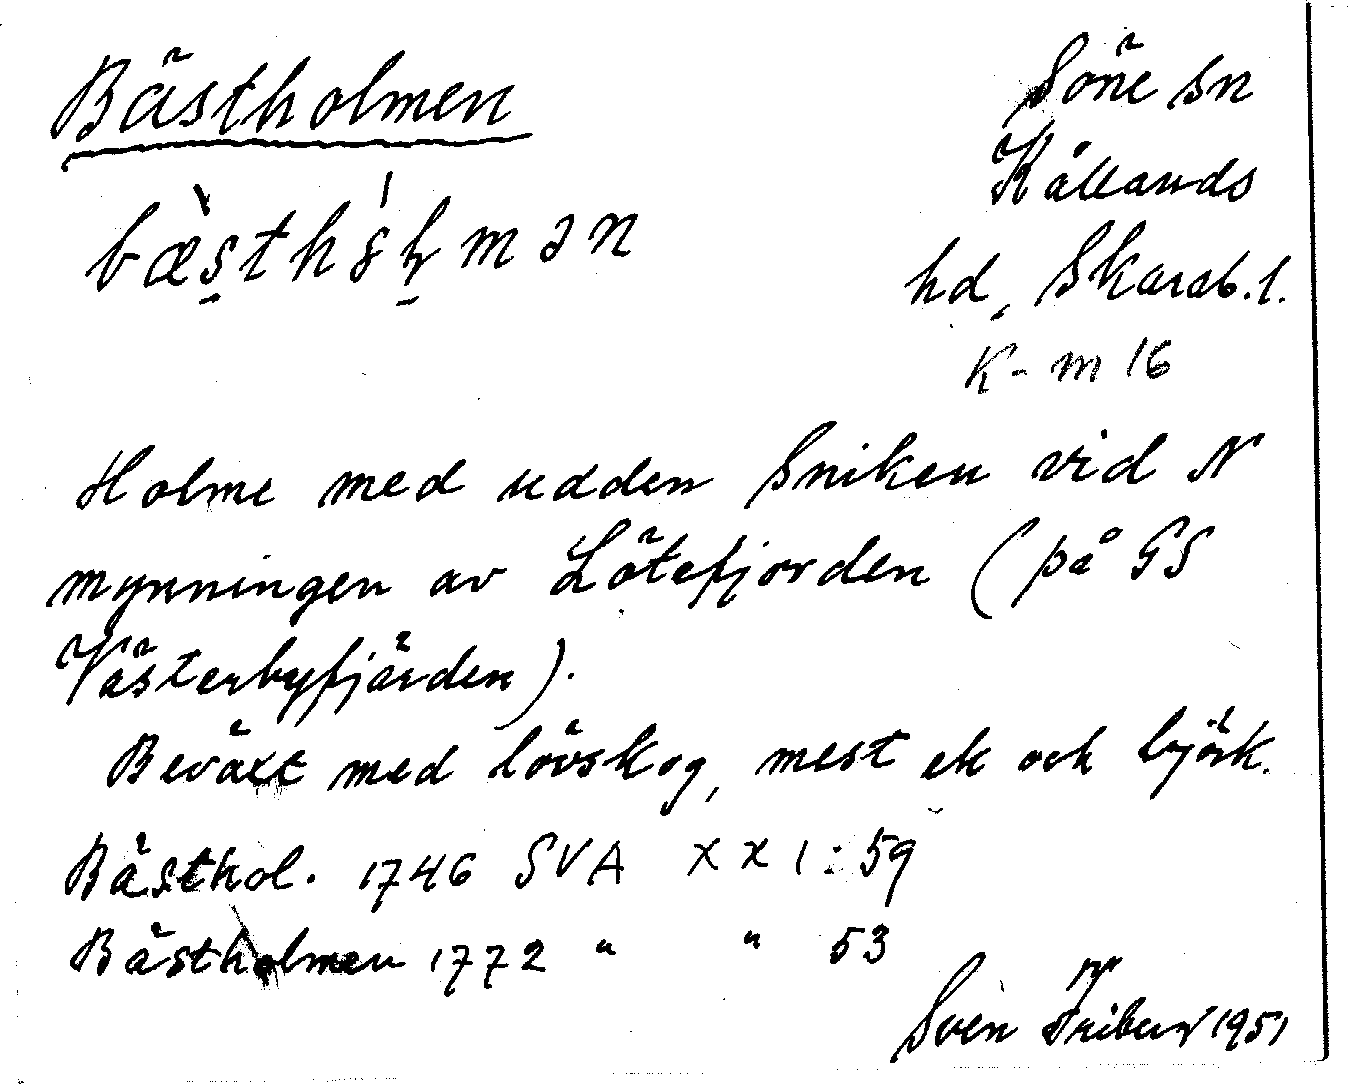 Bästholmen
Söne sn
Kållands
hd, Skarab.l.
K-m 16
Holme med udden Sniken vid N
mynningen av Lötefjorden (på GS
Västerbyfjärden).
Beväxt med lövskog, mest ek och björk.
Bästhol. 1746 SVA XX 1:59
Bästholmen 1772 " " 53
Sven 1951